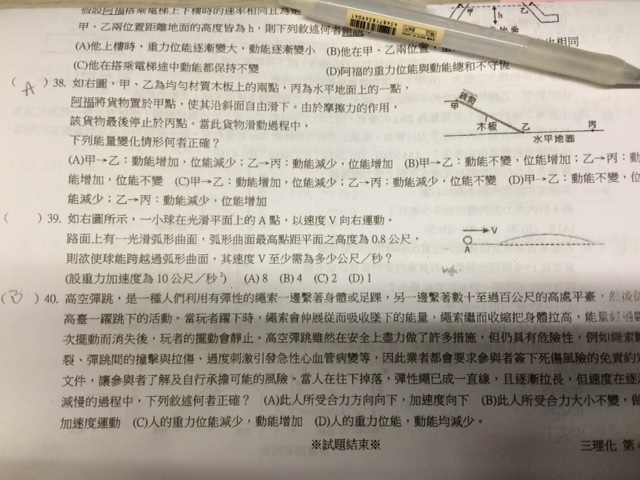 甲、乙兩位置距離地面的高度皆為h,則下列敘述何者
(A)他上樓時,重力位能逐漸變大,動能逐漸變小 (B)他在甲、乙兩位置,
相同
(C)他在搭乘電梯途中動能都保持不變 (D)阿福的重力位能與動能總和不守恆
( A ) 38. 如右圖,甲、乙為均勻材質木板上的兩點,丙為水平地面上的一點,
阿福將貨物置於甲點,使其沿斜面自由滑下。由於摩擦力的作用,
該貨物最後停止於丙點。當此貨物滑動過程中,
下列能量變化情形何者正確?
貨物
甲
木板 乙 丙
水平地面
h
(A)甲→乙:動能增加,位能減少;乙→丙:動能減少,位能增加 (B)甲→乙:動能增加,位能增加;乙→丙:動
能增加,位能不變 (C)甲→乙:動能增加,位能減少;乙→丙:動能減少,位能不變 (D)甲→乙:動能不變,位
能減少;乙→丙:動能增加,位能增加
( ) 39. 如右圖所示,一小球在光滑平面上的 A 點,以速度 V 向右運動。
路面上有一光滑弧形曲面,弧形曲面最高點距平面之高度為 0.8 公尺,
則欲使球能跨越過弧形曲面,其速度 V 至少需為多少公尺/秒?
(設重力加速度為 10 公尺/秒²) (A) 8 (B) 4 (C) 2 (D) 1
V
A
( B ) 40. 高空彈跳,是一種人們利用有彈性的繩索一邊繫著身體或足踝,另一邊繫著數十至過百公尺的高處平臺,然後從
高臺一躍跳下的活動。當玩者躍下時,繩索會伸展從而吸收墜下的能量,繩索繼而收縮把身體拉高,能量經過數
次擺動而消失後,玩者的擺動會靜止。高空彈跳雖然在安全上盡力做了許多措施,但仍具有危險性,例如繩索斷
裂、彈跳間的撞擊與拉傷、過度刺激引發急性心血管病變等,因此業者都會要求參與者簽下死傷風險的免責約
文件,讓參與者了解及自行承擔可能的風險。當人在往下掉落,彈性繩已成一直線,且逐漸拉長,但速度在逐
減慢的過程中,下列敘述何者正確? (A)此人所受合力方向向下,加速度向下 (B)此人所受合力大小不變,做
加速度運動 (C)人的重力位能減少,動能增加 (D)人的重力位能,動能均減少。
※試題結束※
三理化 第